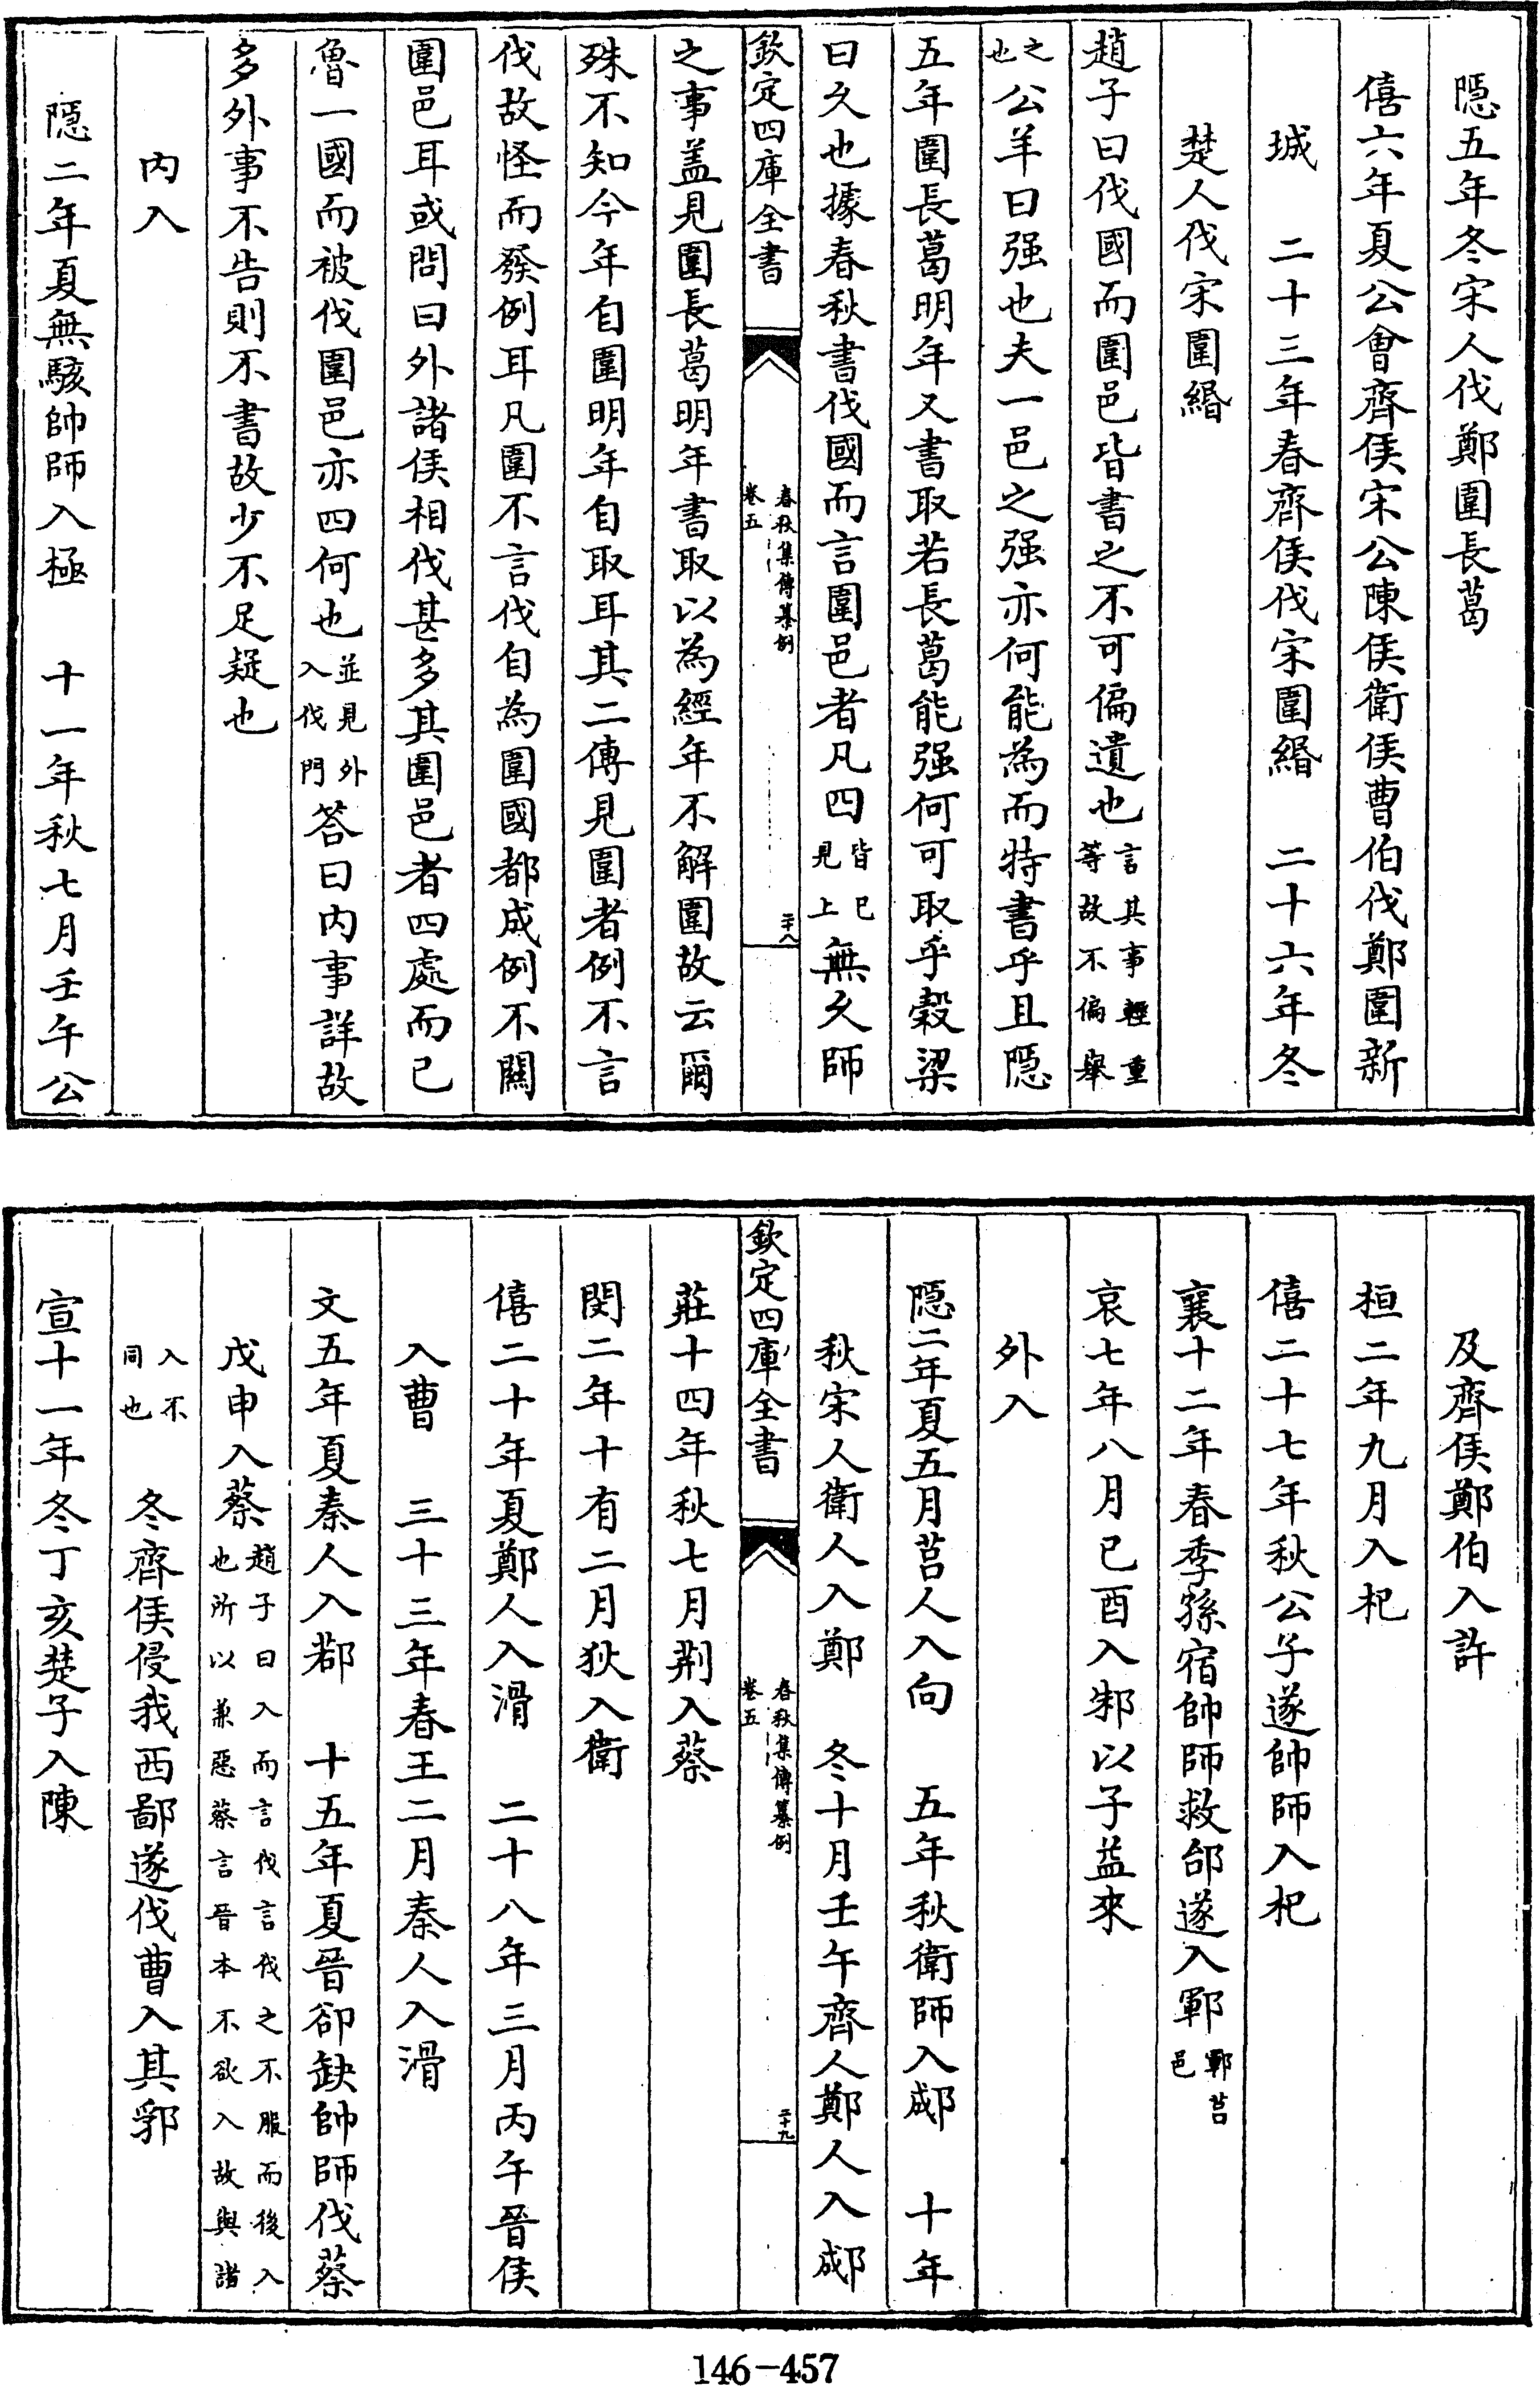 隱五年冬宋人伐鄭圍長葛
僖六年夏公會齊侯宋公陳侯衛侯曹伯伐鄭圍新
城　二十三年春齊侯伐宋圍緡　二十六年冬
楚人伐宋圍緡
趙子曰伐國而圍邑皆書之不可偏遺也言其事輕重等故不偏舉
之也公羊曰强也夫一邑之强亦何能為而特書乎且隱
五年圍長葛明年又書取若長葛能强何可取乎穀梁
曰久也據春秋書伐國而言圍邑者凡四皆已見上無久師
欽定四庫全書
春秋集傳纂例
卷五
二十八
之事盖見圍長葛明年書取以為經年不解圍故云爾
殊不知今年自圍明年自取耳其二傳見圍者例不言
伐故怪而發例耳凡圍不言伐自為圍國都成例不關
圍邑耳或問曰外諸侯相伐甚多其圍邑者四處而已
魯一國而被伐圍邑亦四何也並見外入伐門答曰內事詳故
多外事不告則不書故少不足疑也
內入
隱二年夏無駭帥師入極　十一年秋七月壬午公
及齊侯鄭伯入許
桓二年九月入杞
僖二十七年秋公子遂帥師入杞
襄十二年春季孫宿帥師救邰遂入鄆鄆莒邑
哀七年八月已酉入邾以子益來
外入
隱二年夏五月莒人入向　五年秋衛師入郕　十年
秋宋人衛人入鄭　冬十月壬午齊人鄭人入郕
欽定四庫全書
春秋集傳纂例
卷五
二十九
莊十四年秋七月荆入蔡
閔二年十有二月狄入衛
僖二十年夏鄭人入滑　二十八年三月丙午晉侯
入曹　三十三年春王二月秦人入滑
文五年夏秦人入鄀　十五年夏晉郤缺帥師伐蔡
戊申入蔡趙子曰入而言伐言伐之不服而後入也所以兼惡蔡言晉本不欲入故與諸
入不同也　冬齊侯侵我西鄙遂伐曹入其郛
宣十一年冬丁亥楚子入陳
146-457